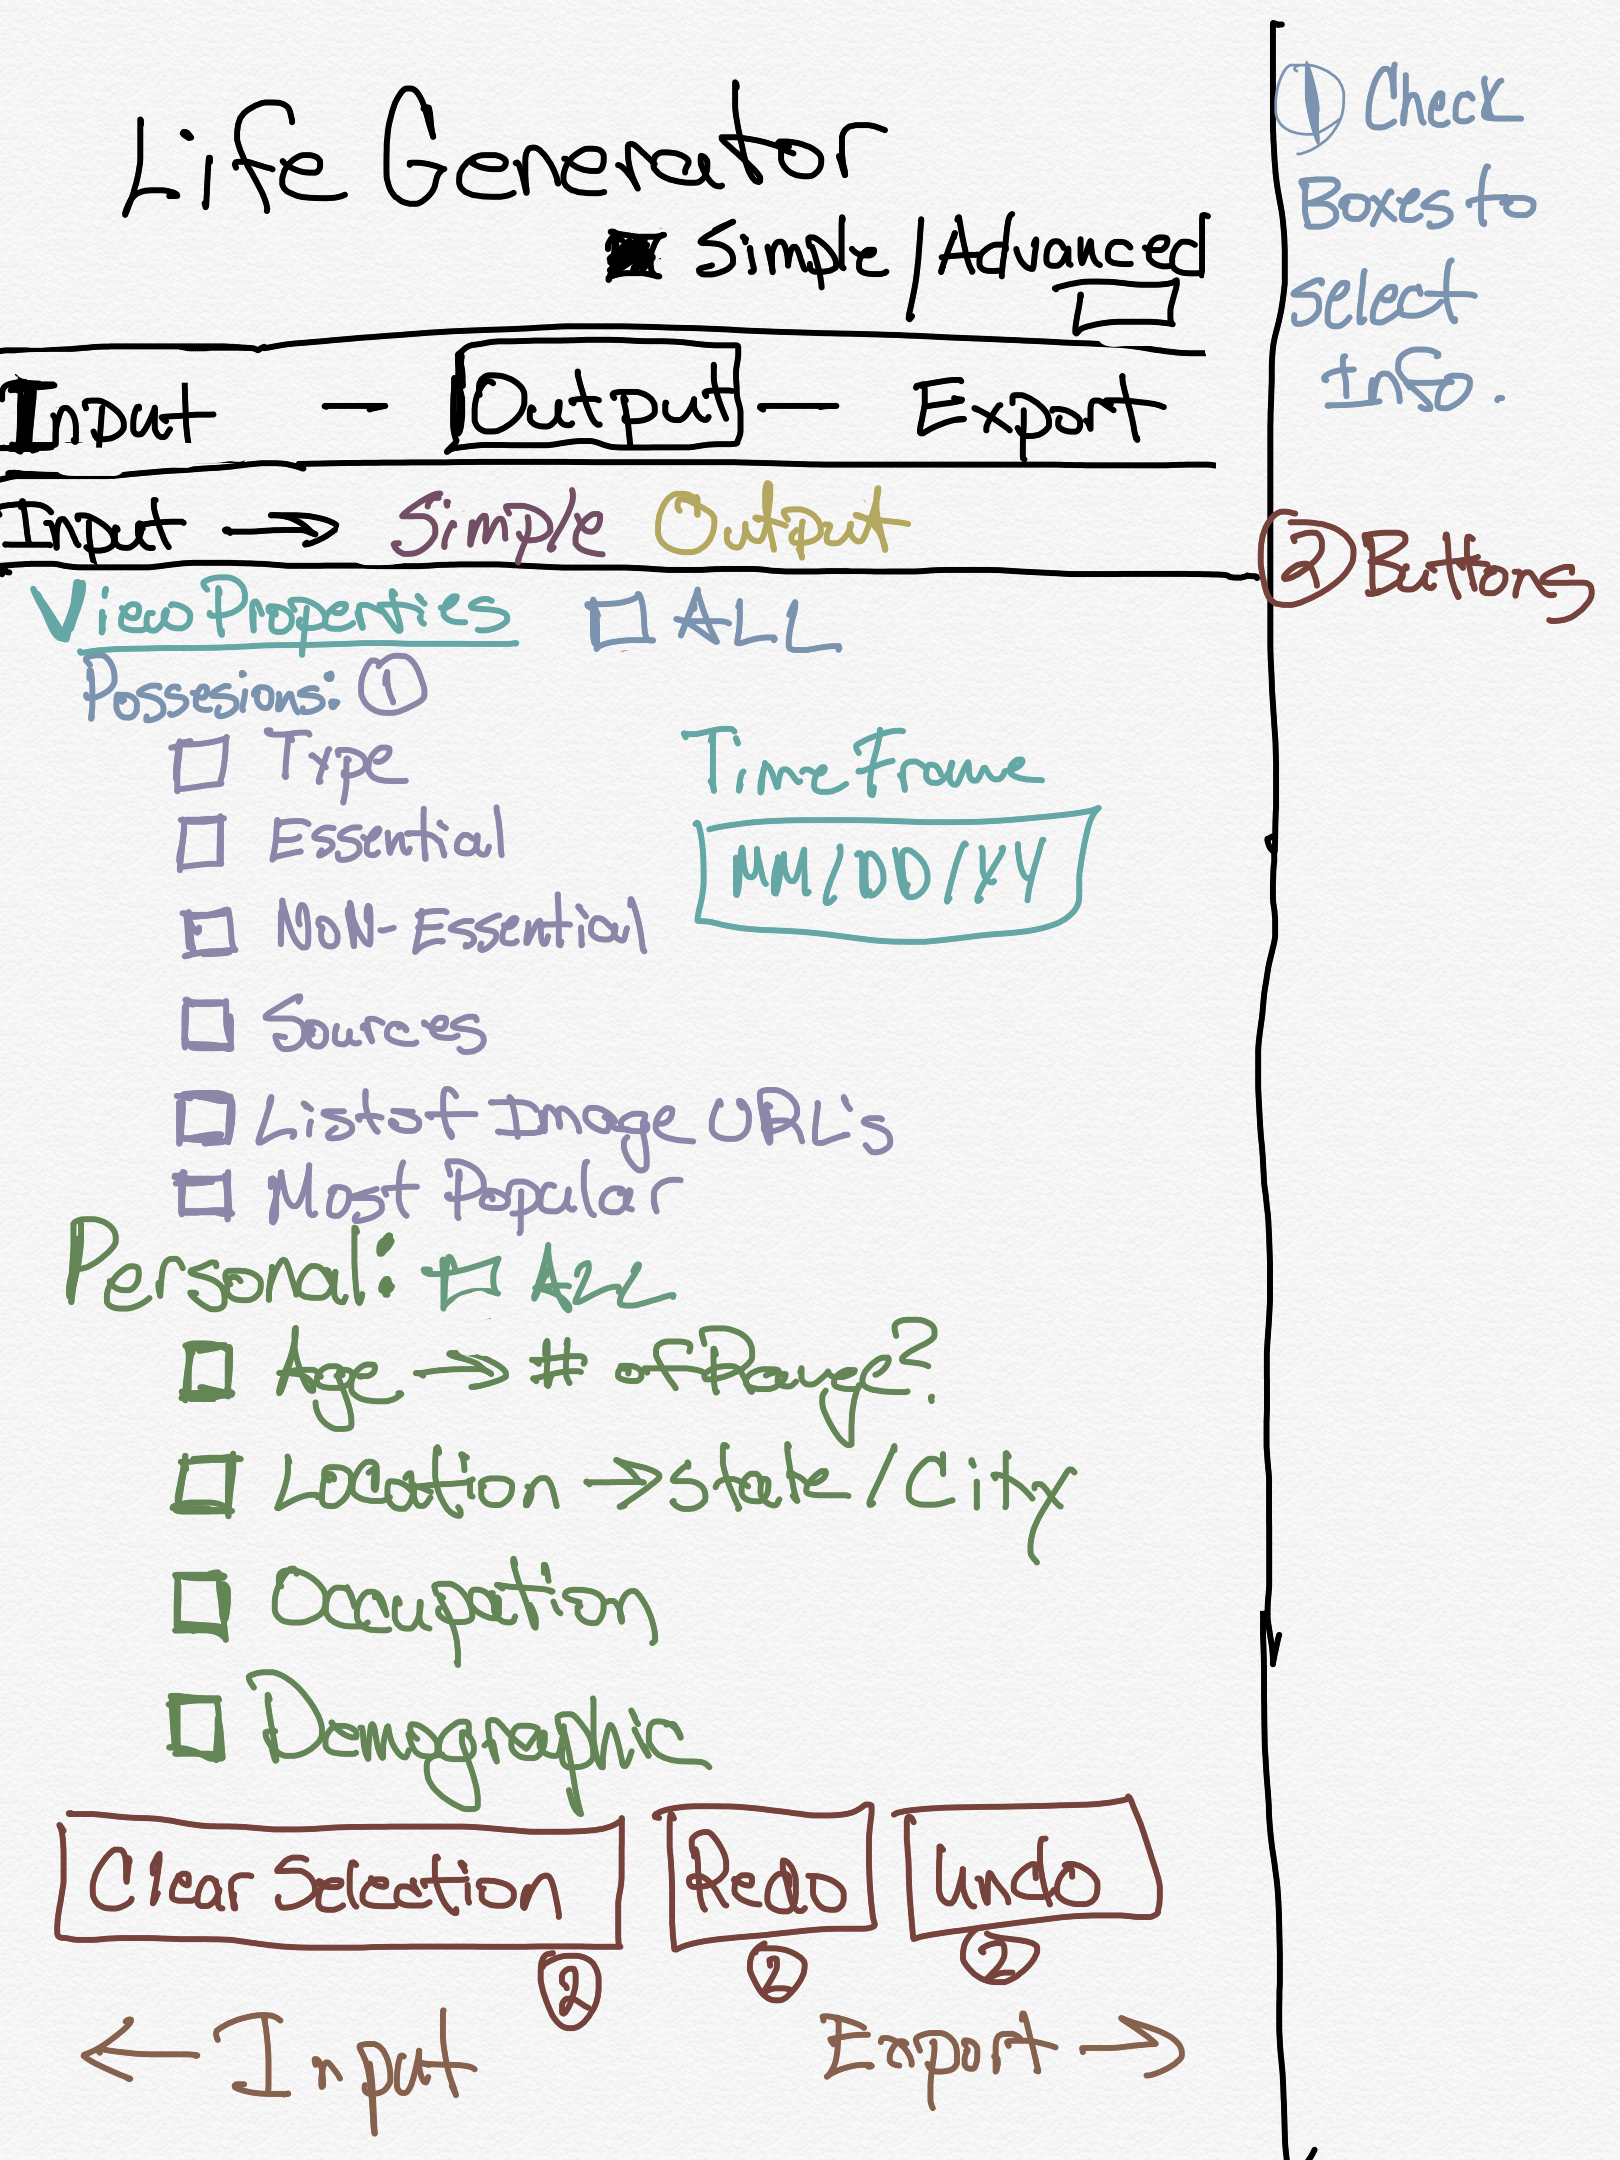 Life Generator
Simple / Advanced
Input — Output — Export
Input → Simple Output
View Properties ALL
Possesions: 1
Type
Essential
Non-Essential
Sources
Lists of Image URL's
Most Popular
Time Frame
MM/DD/YY
Personal: ALL
Age → # of Range?
Location → State/City
Occupation
Demographic
Clear Selection Redo Undo
2 2 2
← Input Export →
1 Check
Boxes to
select
Info.
2 Buttons